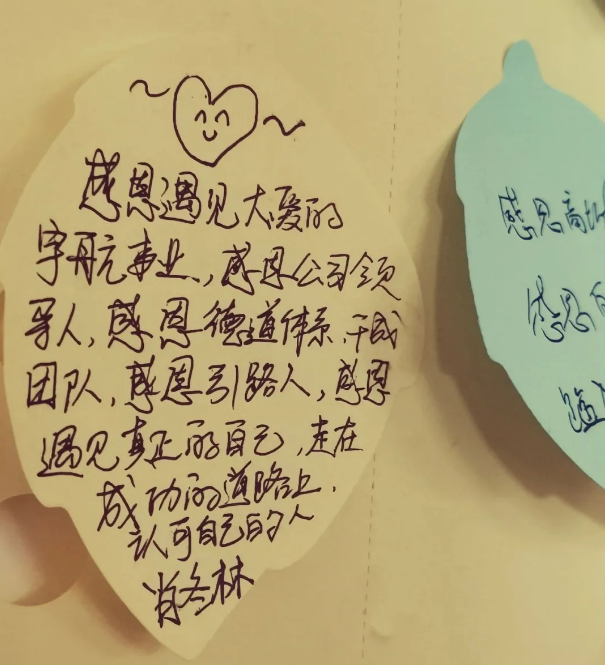 感恩遇见大爱的
宇航事业,感恩公司领
导人,感恩德道体系,干成
团队,感恩引路人,感恩
遇见真正的自己,走在
成功的道路上.
认可自己的人
肖冬林
感恩商
感恩自